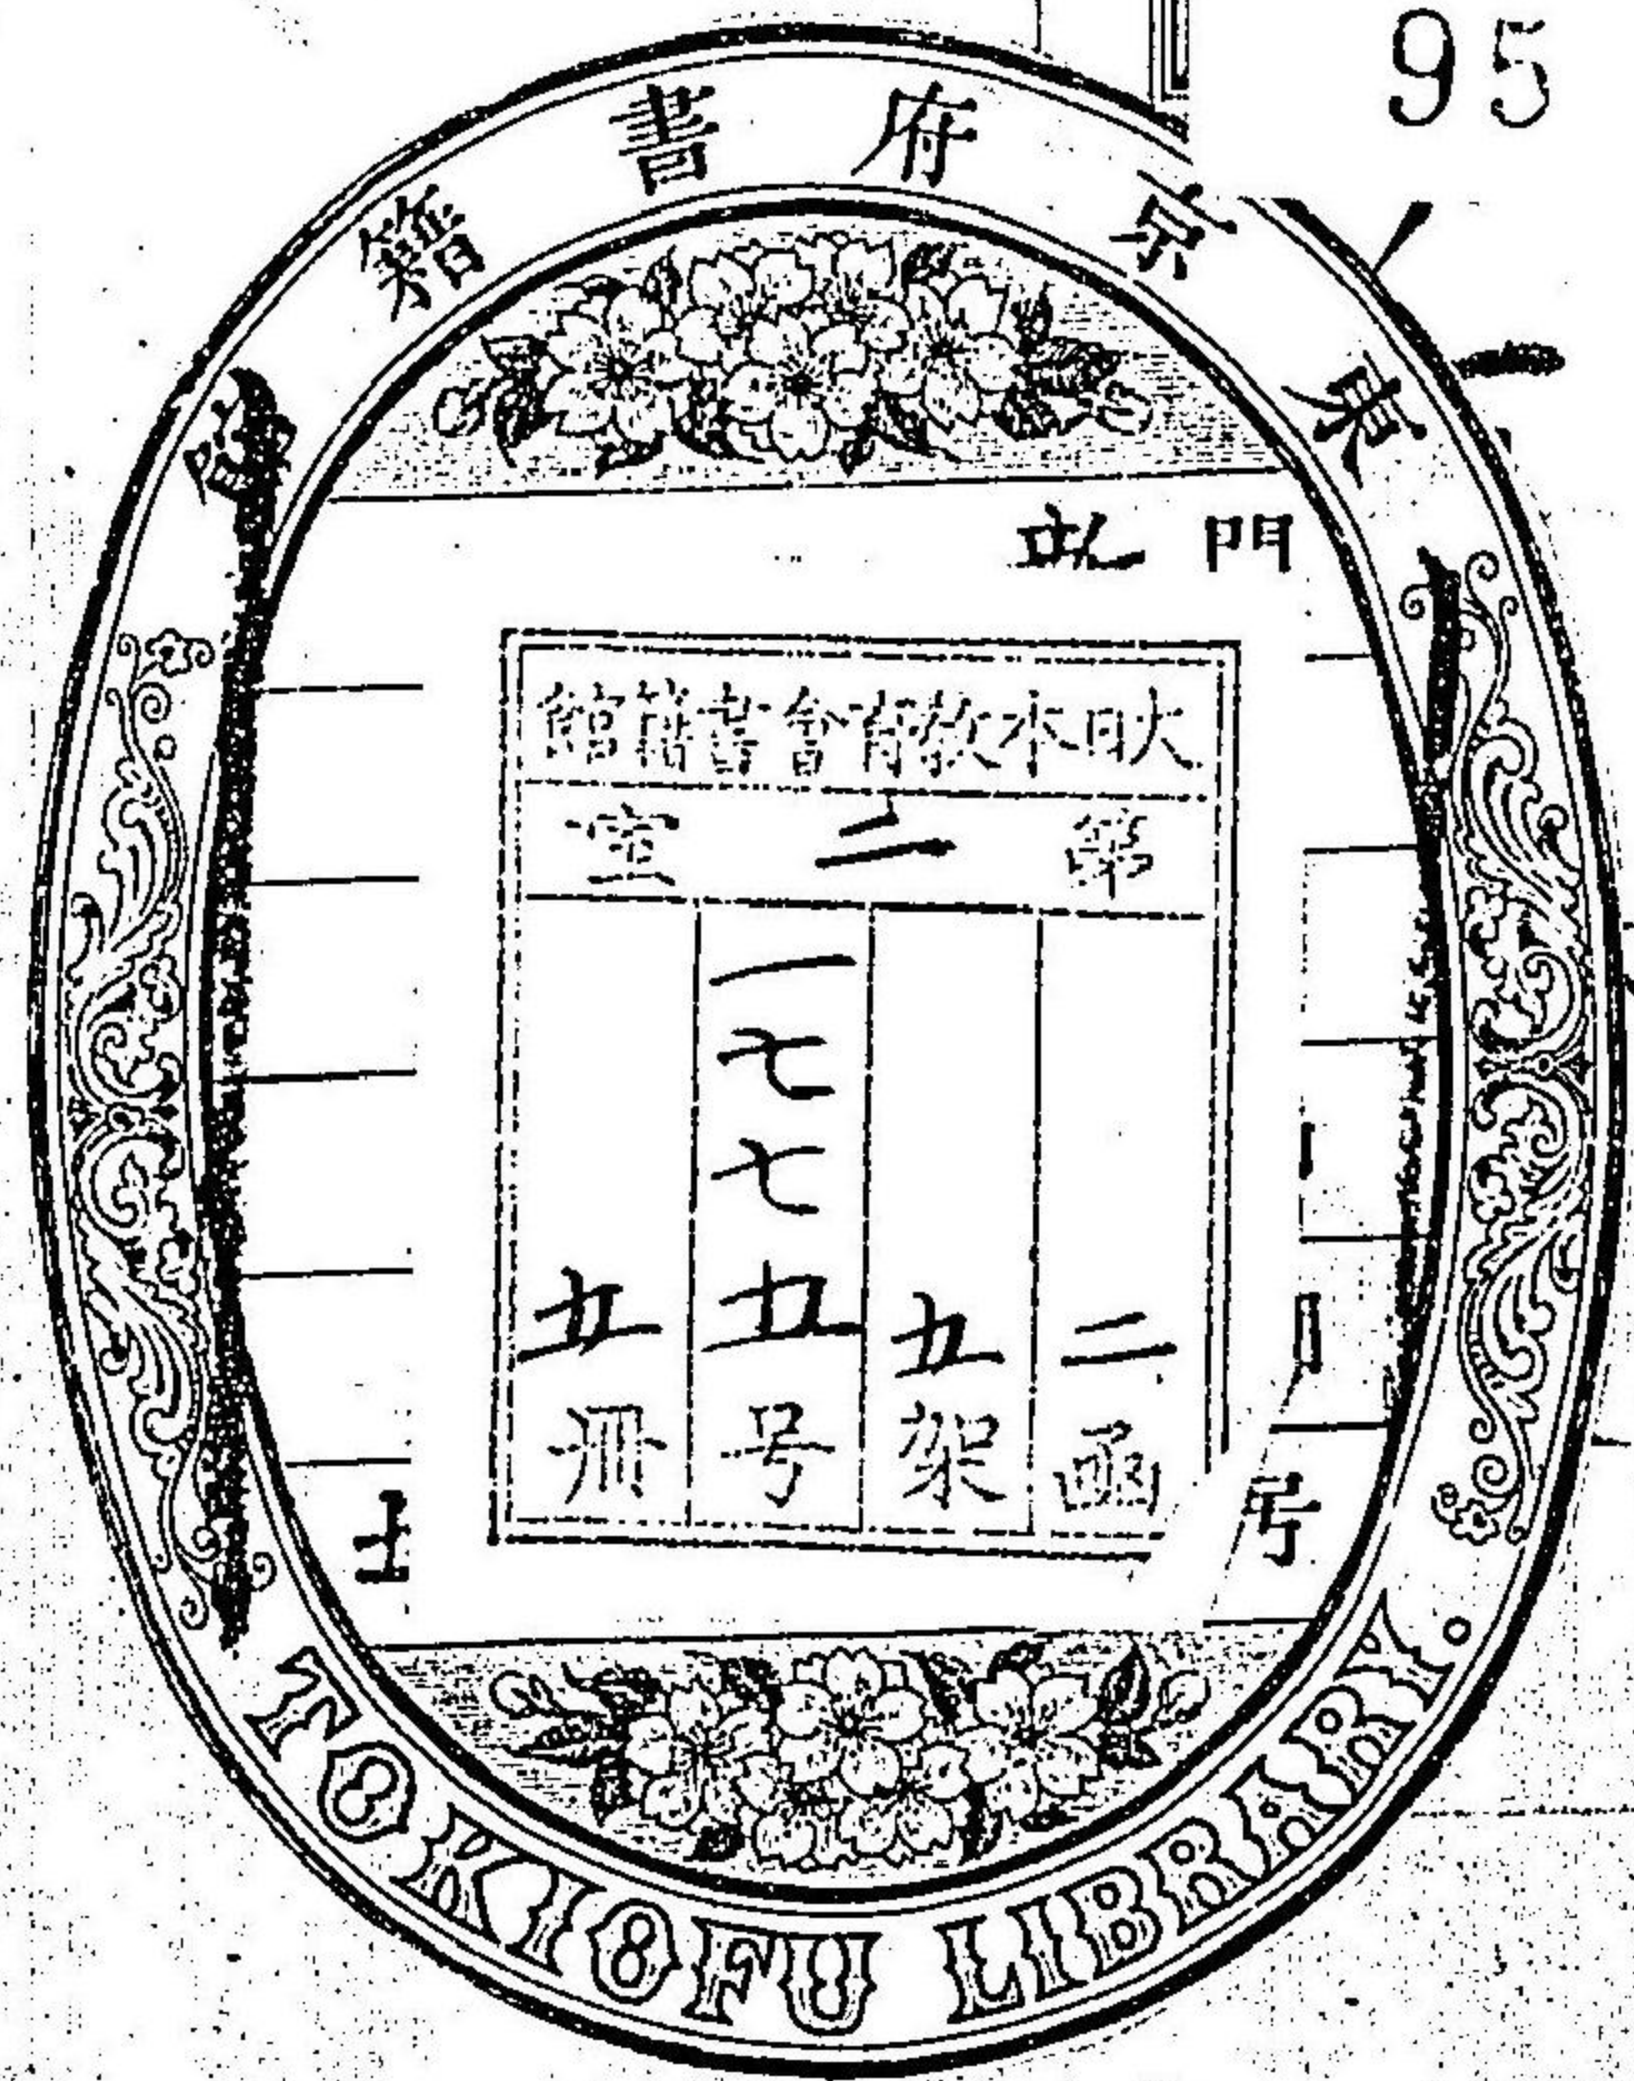 95
東京府書籍館
門
大日本教育會書籍館
第二室
二函
五架
一七七五号
五冊
号
TOKIOFU LIBRARY.